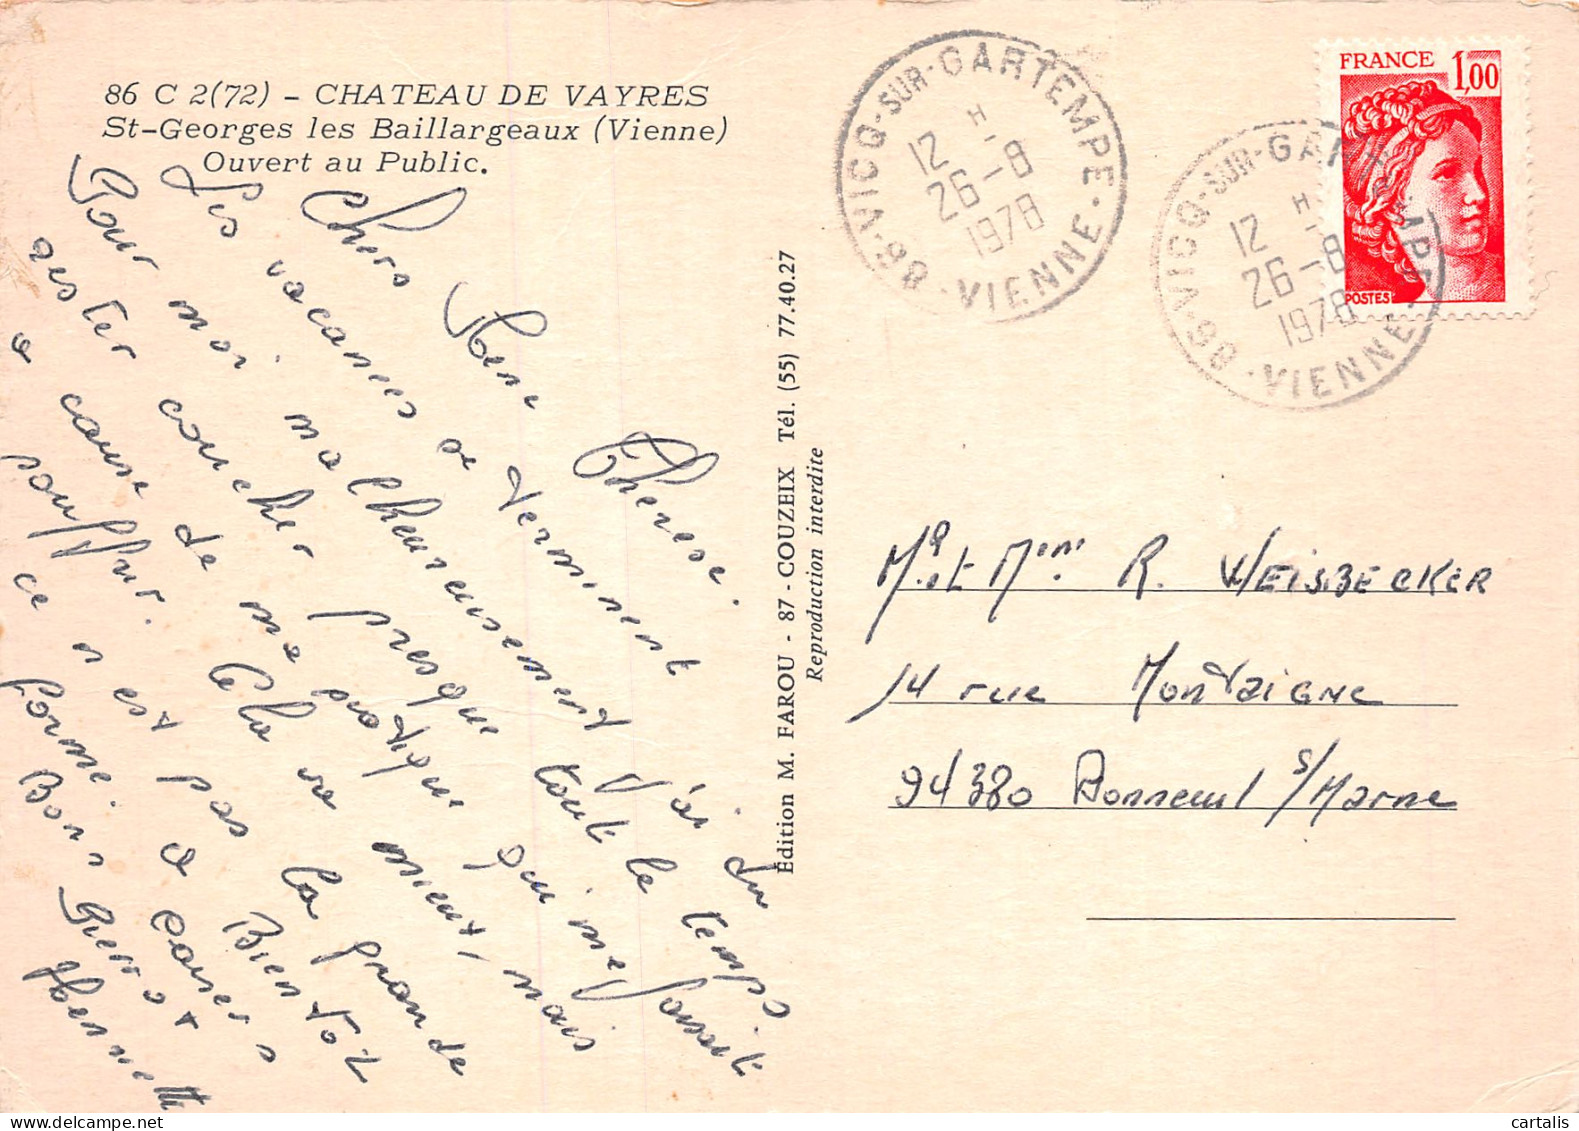 86 C 2(72) - CHATEAU DE VAYRES
St-Georges les Baillargeaux (Vienne)
Ouvert au Public.
Chers Thérèse.
Les vacances se terminent
Pour moi malheureusement j'ai du
rester coucher presque tout le temps
a cause de ma qui me faisait
souffrir. Cela va mieux, mais
ce n est pas la grande
forme. Bientôt
Bons Pierrot
Édition M. FAROU - 87 - COUZEIX Tél. (55) 77.40.27
Reproduction interdite
VICQ-SUR-GARTEMPE
12 H
26-8
1978
86 - VIENNE
VICQ-SUR-GARTEMPE
12 H
26-8
1978
86 - VIENNE
FRANCE 1,00
POSTES
Mr et Mme R. WEISBECKER
14 rue Montaigne
94380 Bonneuil s/Marne
cartalis